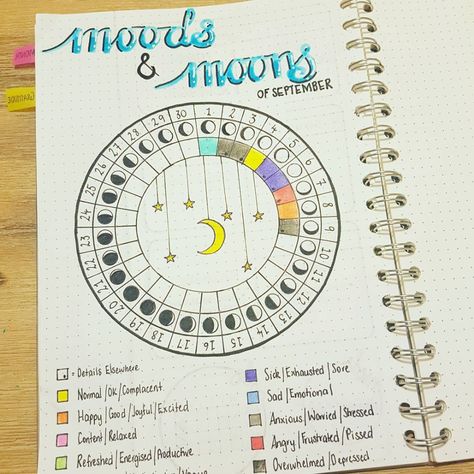 moods
& moons
OF SEPTEMBER
GRATITUDE
1 2 3 4 5 6 7 8 9 10 11 12 13 14 15 16 17 18 19 20 21 22 23 24 25 26 27 28 29 30
= Details Elsewhere
Normal/OK/Complacent
Happy/Good/Joyful/Excited
Content/Relaxed
Refreshed/Energised/Productive
Sick/Exhausted/Sore
Sad/Emotional
Anxious/Worried/Stressed
Angry/Frustrated/Pissed
Overwhelmed/Depressed